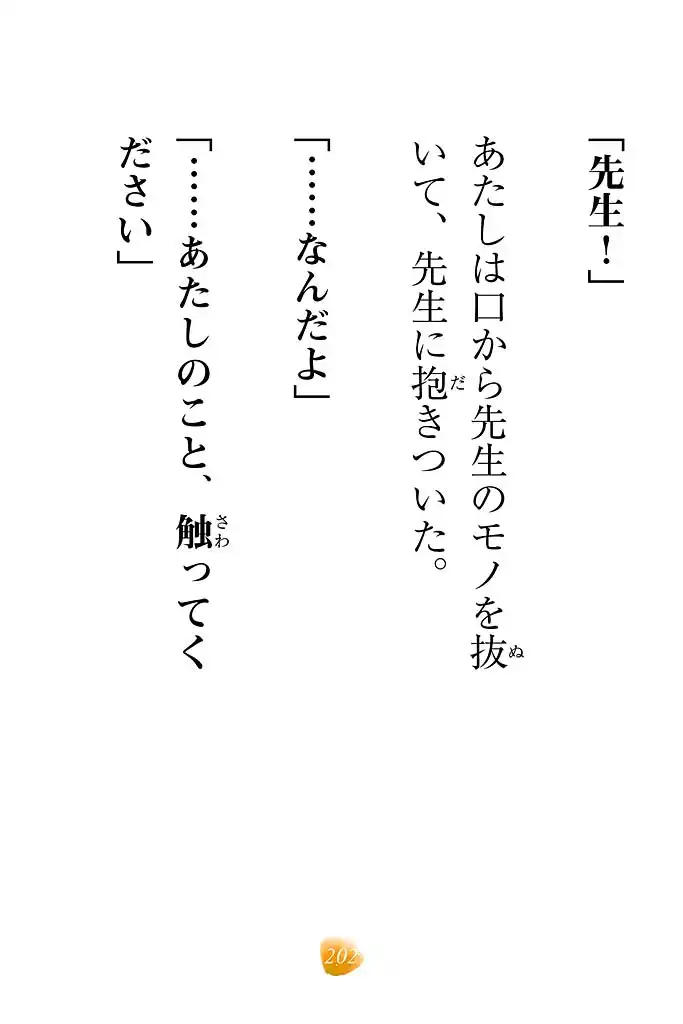 「先生！」
あたしは口から先生のモノを抜
ぬ
いて、先生に抱きついた。
だ
「……なんだよ」
「……あたしのこと、触ってく
さわ
ださい」
202